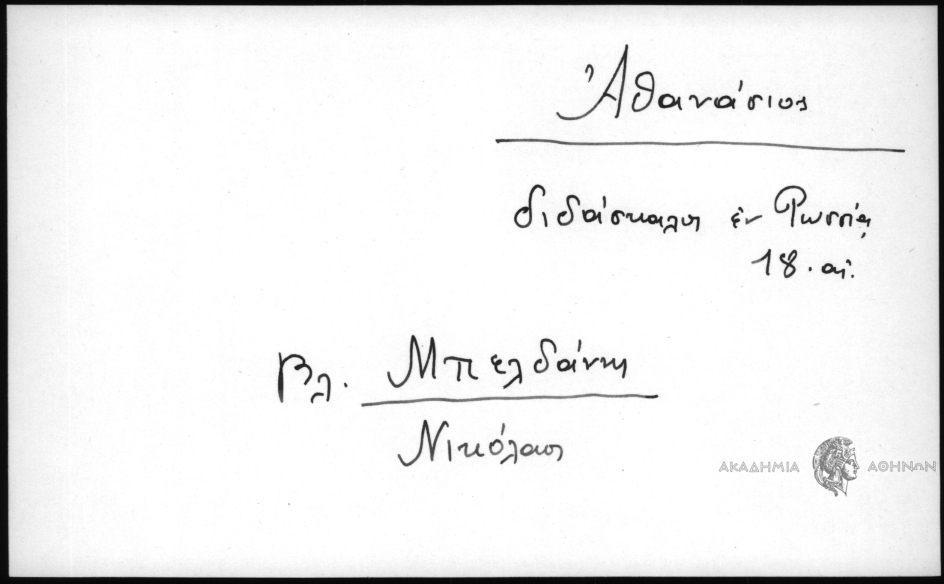 Ἀθανάσιος
διδάσκαλος ἐν Ρωσσίᾳ
18. αἰ.
Βλ. Μπελδάνης
Νικόλαος
ΑΚΑΔΗΜΙΑ ΑΘΗΝΩΝ